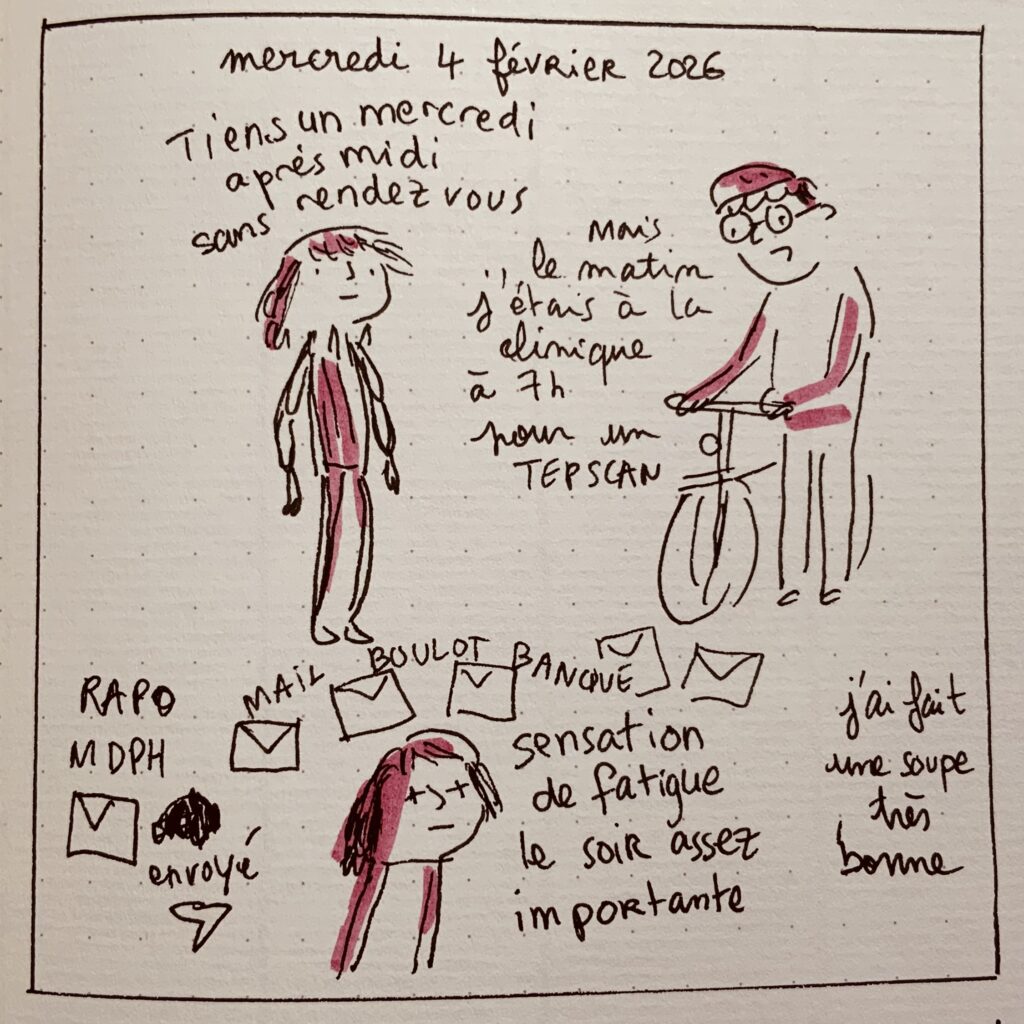 mercredi 4 février 2026
Tiens un mercredi
après midi
sans rendez vous
Mais
le matin
j'étais à la
clinique
à 7h
pour un
TEPSCAN
RAPO
MDPH
envoyé
MAIL
BOULOT
BANQUE
sensation
de fatigue
le soir assez
importante
j'ai fait
une soupe
très
bonne